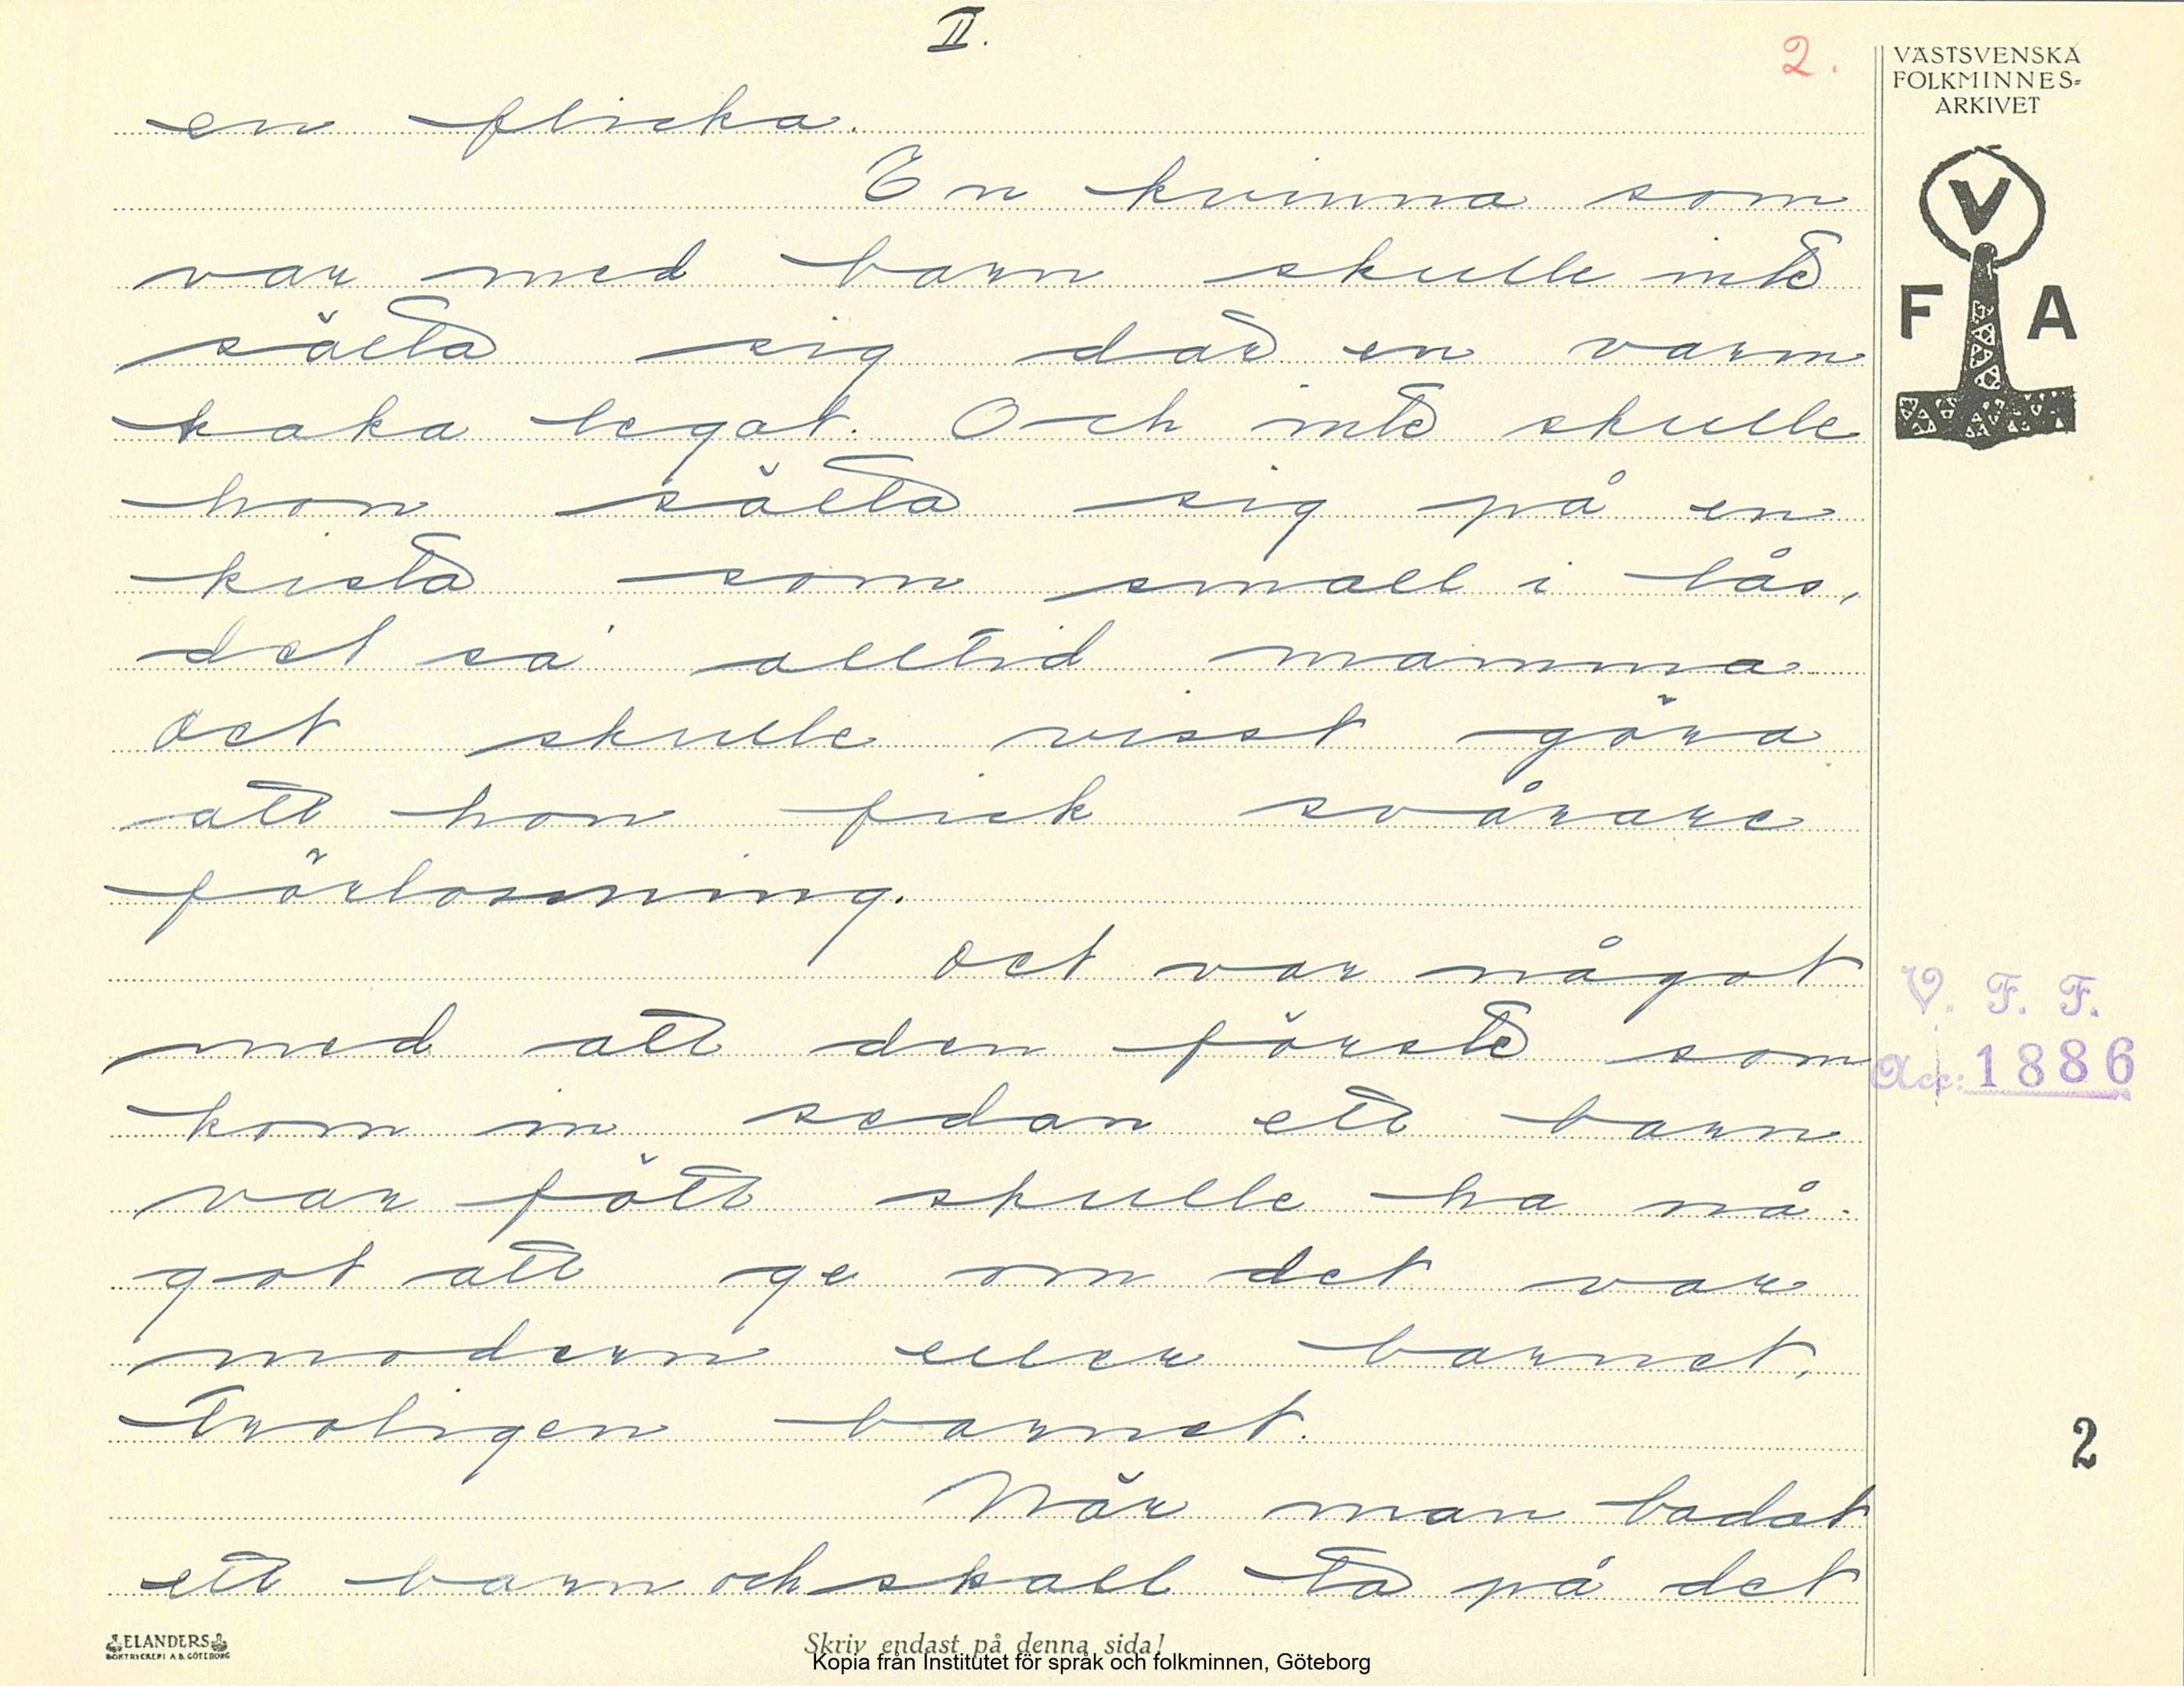 II.
2.
VÄSTSVENSKA
FOLKMINNES-
ARKIVET
V
F A
en flicka.
En kvinna som
var med barn skulle inte
sätta sig där en varm
kaka legat. Och inte skulle
hon sätta sig på en
kista som small i lås,
det sa' alltid mamma
det skulle visst göra
att hon fick svårare
förlossning.
Det var något
med att den förste som
kom in sedan ett barn
var fött skulle ha nå-
got att ge om det var
modern eller barnet,
troligen barnet.
När man badat
ett barn och skall ta på det
V. F. F.
Acc: 1886
2
ELANDERS
BOKTRYCKERI A.B. GÖTEBORG
Skriv endast på denna sida!
Kopia från Institutet för språk och folkminnen, Göteborg